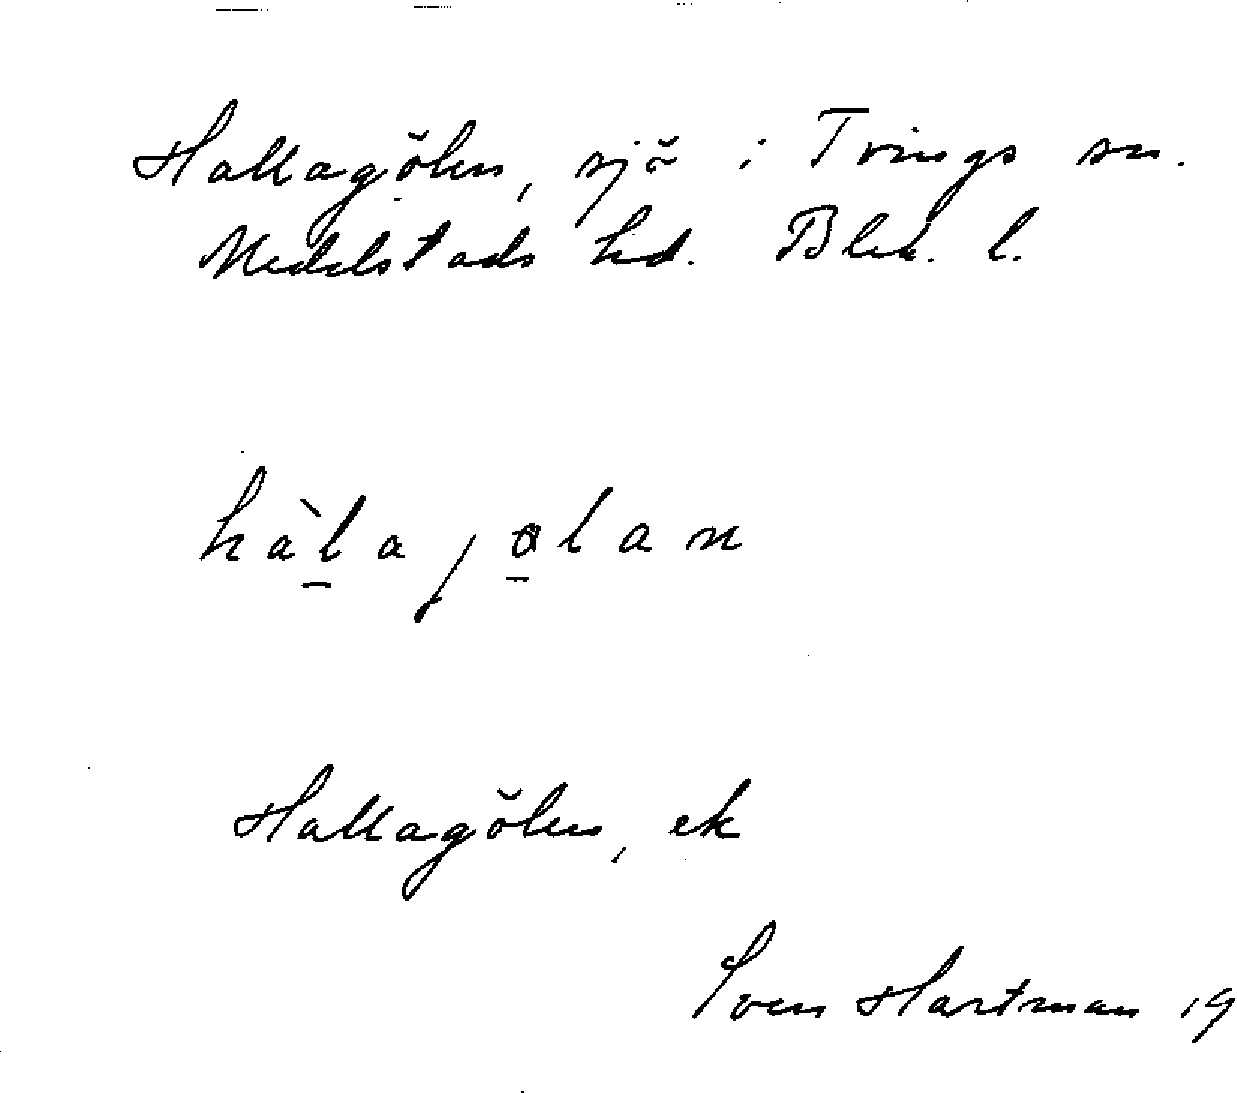 Hallagölen, sjö i Tvings sn.
Medelstads hd. Blek. l.
hàl̠a jo̠lan
Hallagölen, ek
Sven Hartman 19